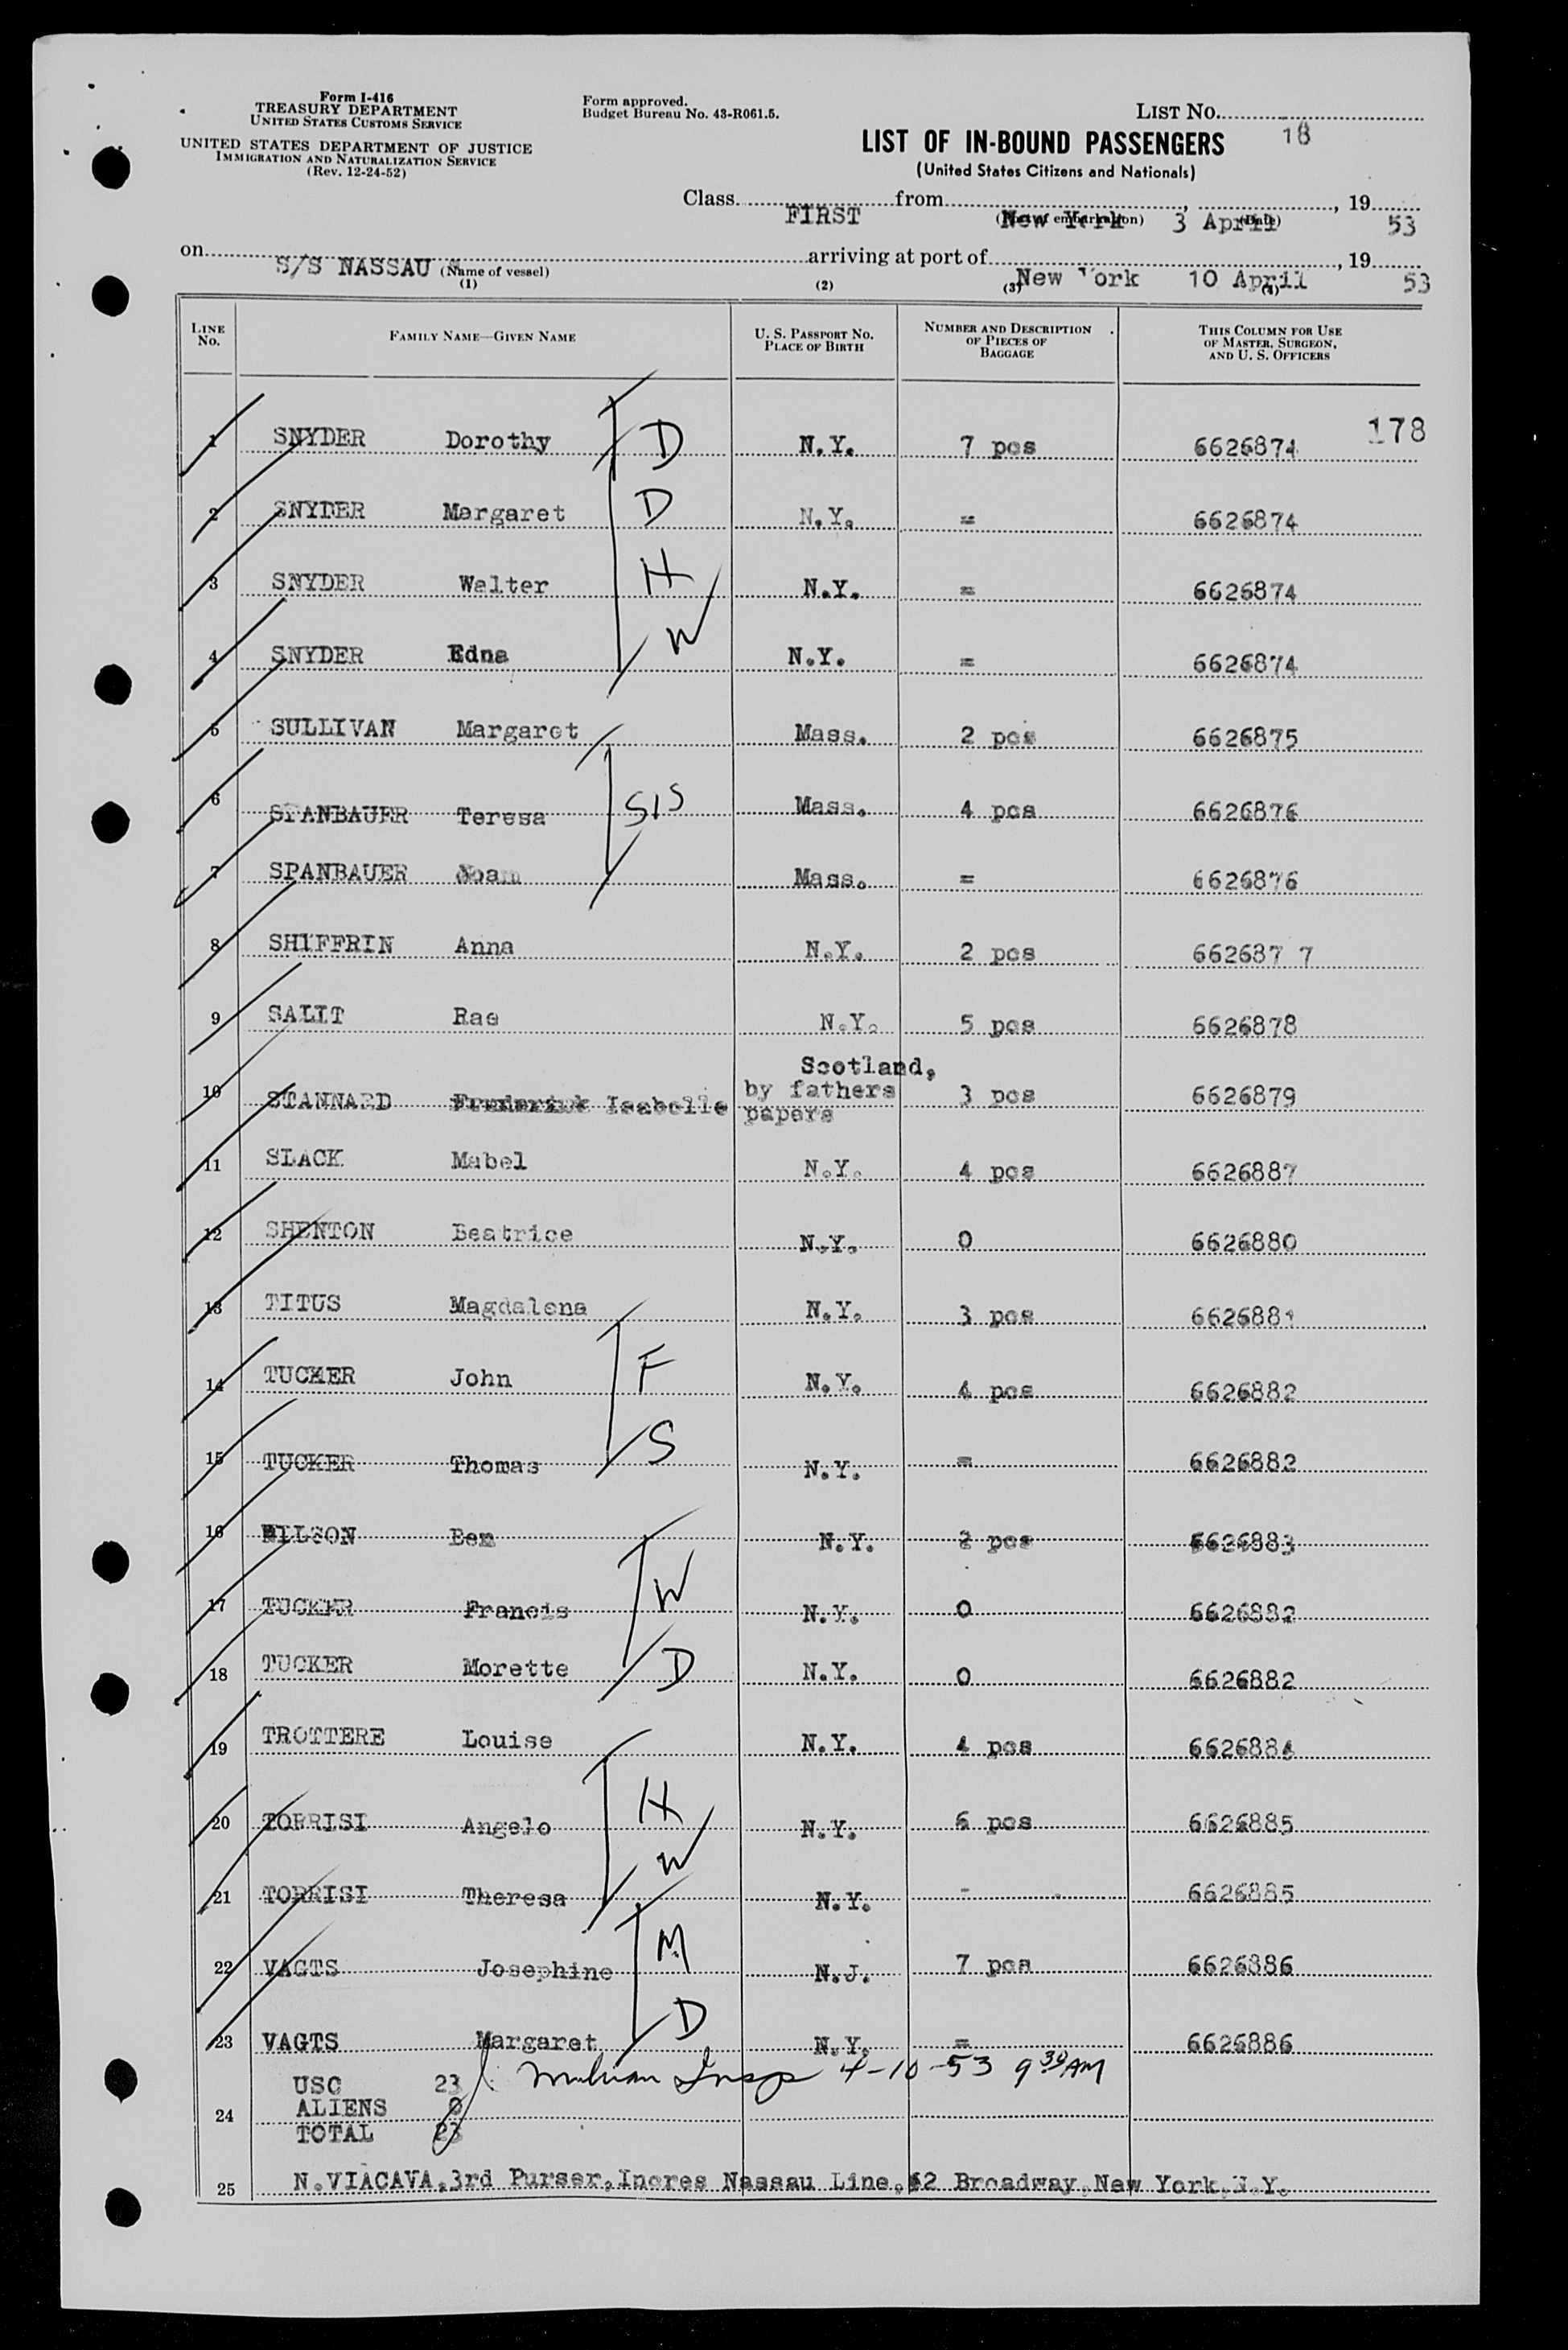 Form I-416
TREASURY DEPARTMENT
UNITED STATES CUSTOMS SERVICE
UNITED STATES DEPARTMENT OF JUSTICE
IMMIGRATION AND NATURALIZATION SERVICE
(Rev. 12-24-52)
Form approved.
Budget Bureau No. 43-R061.5.
LIST No. 18
LIST OF IN-BOUND PASSENGERS
(United States Citizens and Nationals)
Class FIRST from New York 3 April, 19 53
(Port of embarkation) (Date)
on S/S NASSAU arriving at port of New York 10 April, 19 53
(Name of vessel)
(1) (2) (3) (4)
LINE No. FAMILY NAME—GIVEN NAME U. S. PASSPORT NO. PLACE OF BIRTH NUMBER AND DESCRIPTION OF PIECES OF BAGGAGE THIS COLUMN FOR USE OF MASTER, SURGEON, AND U. S. OFFICERS
178
1 SNYDER Dorothy D N.Y. 7 pcs 6626874
2 SNYDER Margaret D N.Y. = 6626874
3 SNYDER Walter H N.Y. = 6626874
4 SNYDER Edna W N.Y. = 6626874
5 SULLIVAN Margaret Mass. 2 pcs 6626875
6 SPANBAUER Teresa SIS Mass. 4 pcs 6626876
7 SPANBAUER Joan Mass. = 6626876
8 SHIFFRIN Anna N.Y. 2 pcs 662687 7
9 SALIT Rae N.Y. 5 pcs 6626878
10 STANNARD Frederick Isabelle Scotland, by fathers papers 3 pcs 6626879
11 SLACK Mabel N.Y. 4 pcs 6626887
12 SHENTON Beatrice N.Y. 0 6626880
13 TITUS Magdalena N.Y. 3 pcs 6626881
14 TUCKER John F N.Y. 4 pcs 6626882
15 TUCKER Thomas S N.Y. = 6626882
16 WILSON Bem N.Y. 2 pcs 6626883
17 TUCKER Francis W N.Y. 0 6626882
18 TUCKER Morette D N.Y. 0 6626882
19 TROTTERE Louise N.Y. 4 pcs 6626884
20 TORRISI Angelo H N.Y. 6 pcs 6626885
21 TORRISI Theresa W N.Y. - 6626885
22 VAGTS Josephine M N.J. 7 pcs 6626886
23 VAGTS Margaret D N.Y. = 6626886
Insp 4-10-53 9 30 AM
USC 23
24 ALIENS 0
TOTAL 23
25 N.VIACAVA,3rd Purser,Incres Nassau Line,42 Broadway,New York,N.Y.